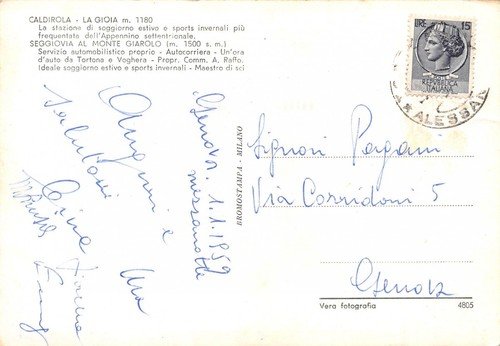 CALDIROLA - LA GIOIA m. 1180
La stazione di soggiorno estivo e sports invernali più
frequentata dell'Appennino settentrionale.
SEGGIOVIA AL MONTE GIAROLO (m. 1500 s. m.)
Servizio automobilistico proprio - Autocorriera - Un'ora
d'auto da Tortona e Voghera - Propr. Comm. A. Raffo.
Ideale soggiorno estivo e sports invernali - Maestro di sci
Genova 1.1.1959
mezzanotte
Auguri e
salutoni
Gina
BROMOSTAMPA - MILANO
LIRE 15
REPUBBLICA
ITALIANA
ALESSAN
Signori Pagani
Via Corridoni 5
Genova
Vera fotografia 4805